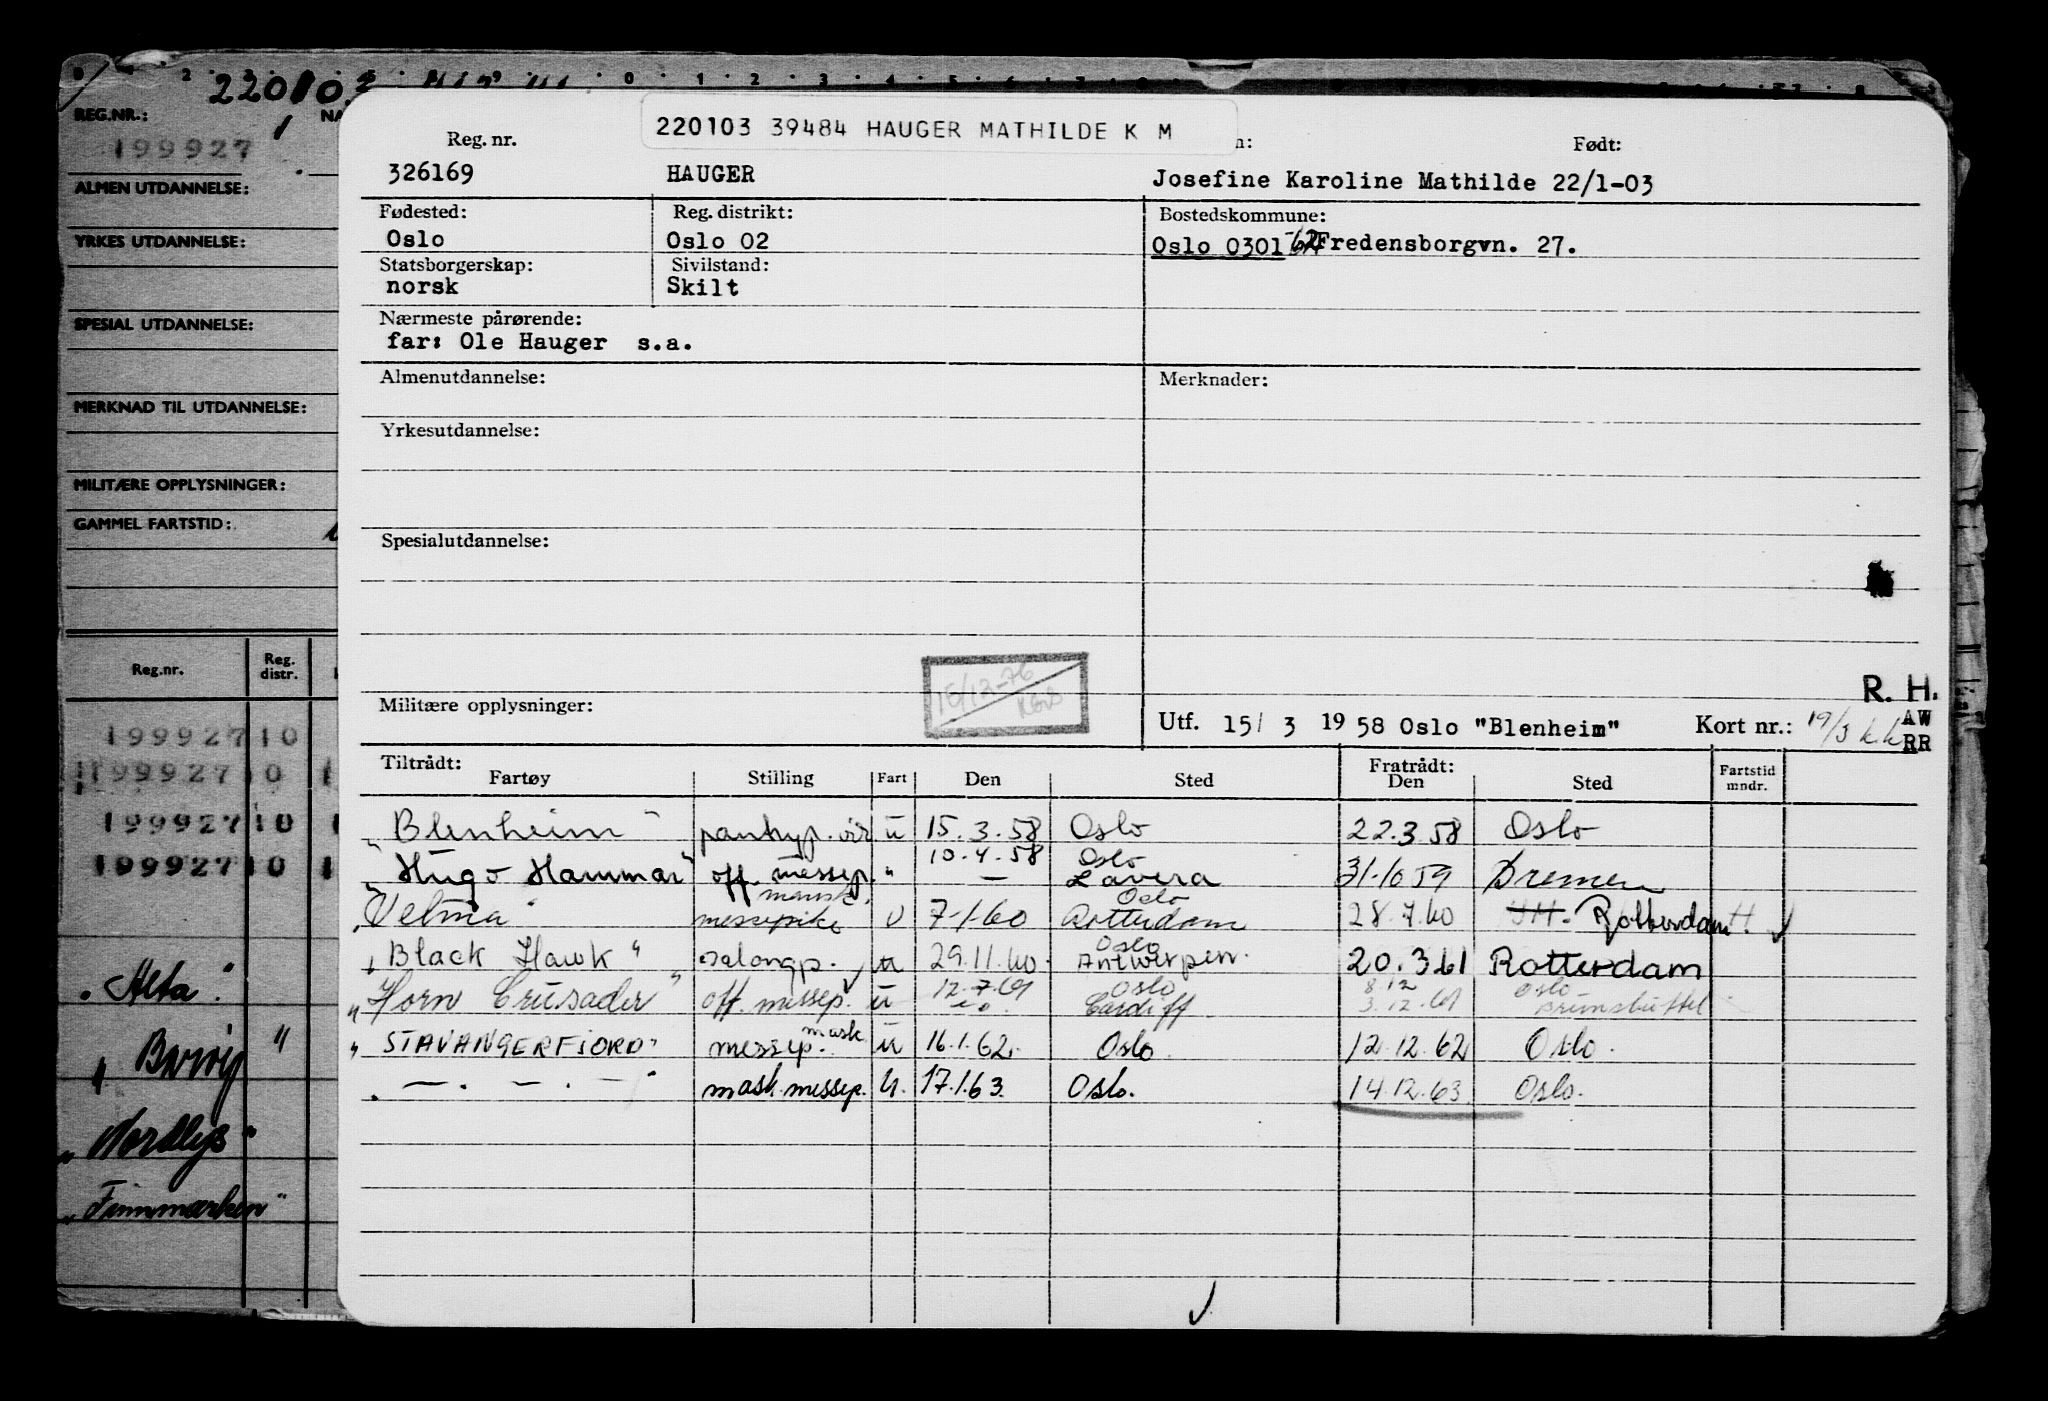 220103
1
REG.NR.: NA
199927
ALMEN UTDANNELSE:
YRKES UTDANNELSE:
SPESIAL UTDANNELSE:
MERKNAD TIL UTDANNELSE:
MILITÆRE OPPLYSNINGER:
GAMMEL FARTSTID:
Reg.nr. Reg. distr.
199927 10
199927 10 1
199927 10 1
199927 10 1
"Alta"
"Barøy"
"Nordlys"
"Finnmarken"
220103 39484 HAUGER MATHILDE K M
Reg. nr. n: Født:
326169 HAUGER Josefine Karoline Mathilde 22/1-03
Fødested: Reg. distrikt: Bostedskommune:
Oslo Oslo 02 Oslo 0301 -62 Fredensborgvn. 27.
Statsborgerskap: Sivilstand:
norsk Skilt
Nærmeste pårørende:
far: Ole Hauger s.a.
Almenutdannelse: Merknader:
Yrkesutdannelse:
Spesialutdannelse:
15/12-76
R. H.
Militære opplysninger: Utf. 15/ 3 1958 Oslo "Blenheim" Kort nr.: 19/3 k.k AW
RR
Tiltrådt: Fratrådt:
Fartøy Stilling Fart Den Sted Den Sted Fartstid mndr.
"Blenheim" pantryp. u 15.3.58 Oslo 22.3.58 Oslo
"Hugo Hammar" off. messep. " 10.4.58 — Oslo Lavera 31.10 59 Bremen
"Velma" mansk. messepike u 7.1.60 Oslo Rotterdam 28.7.60 Rotterdam
"Black Hawk" salongp. u 29.11.60. Oslo Antwerpen. 20.3.61 Rotterdam
"Horn Crusader" off. messep. u 12.7.61 Oslo Cardiff. 8.12 3.12.61 Oslo Brunsbüttel
"STAVANGERFJORD" messep. mask u 16.1.62. Oslo. 12.12.62 Oslo.
" — . — . — " mask. messep. u. 17.1.63. Oslo. 14.12.63 Oslo.